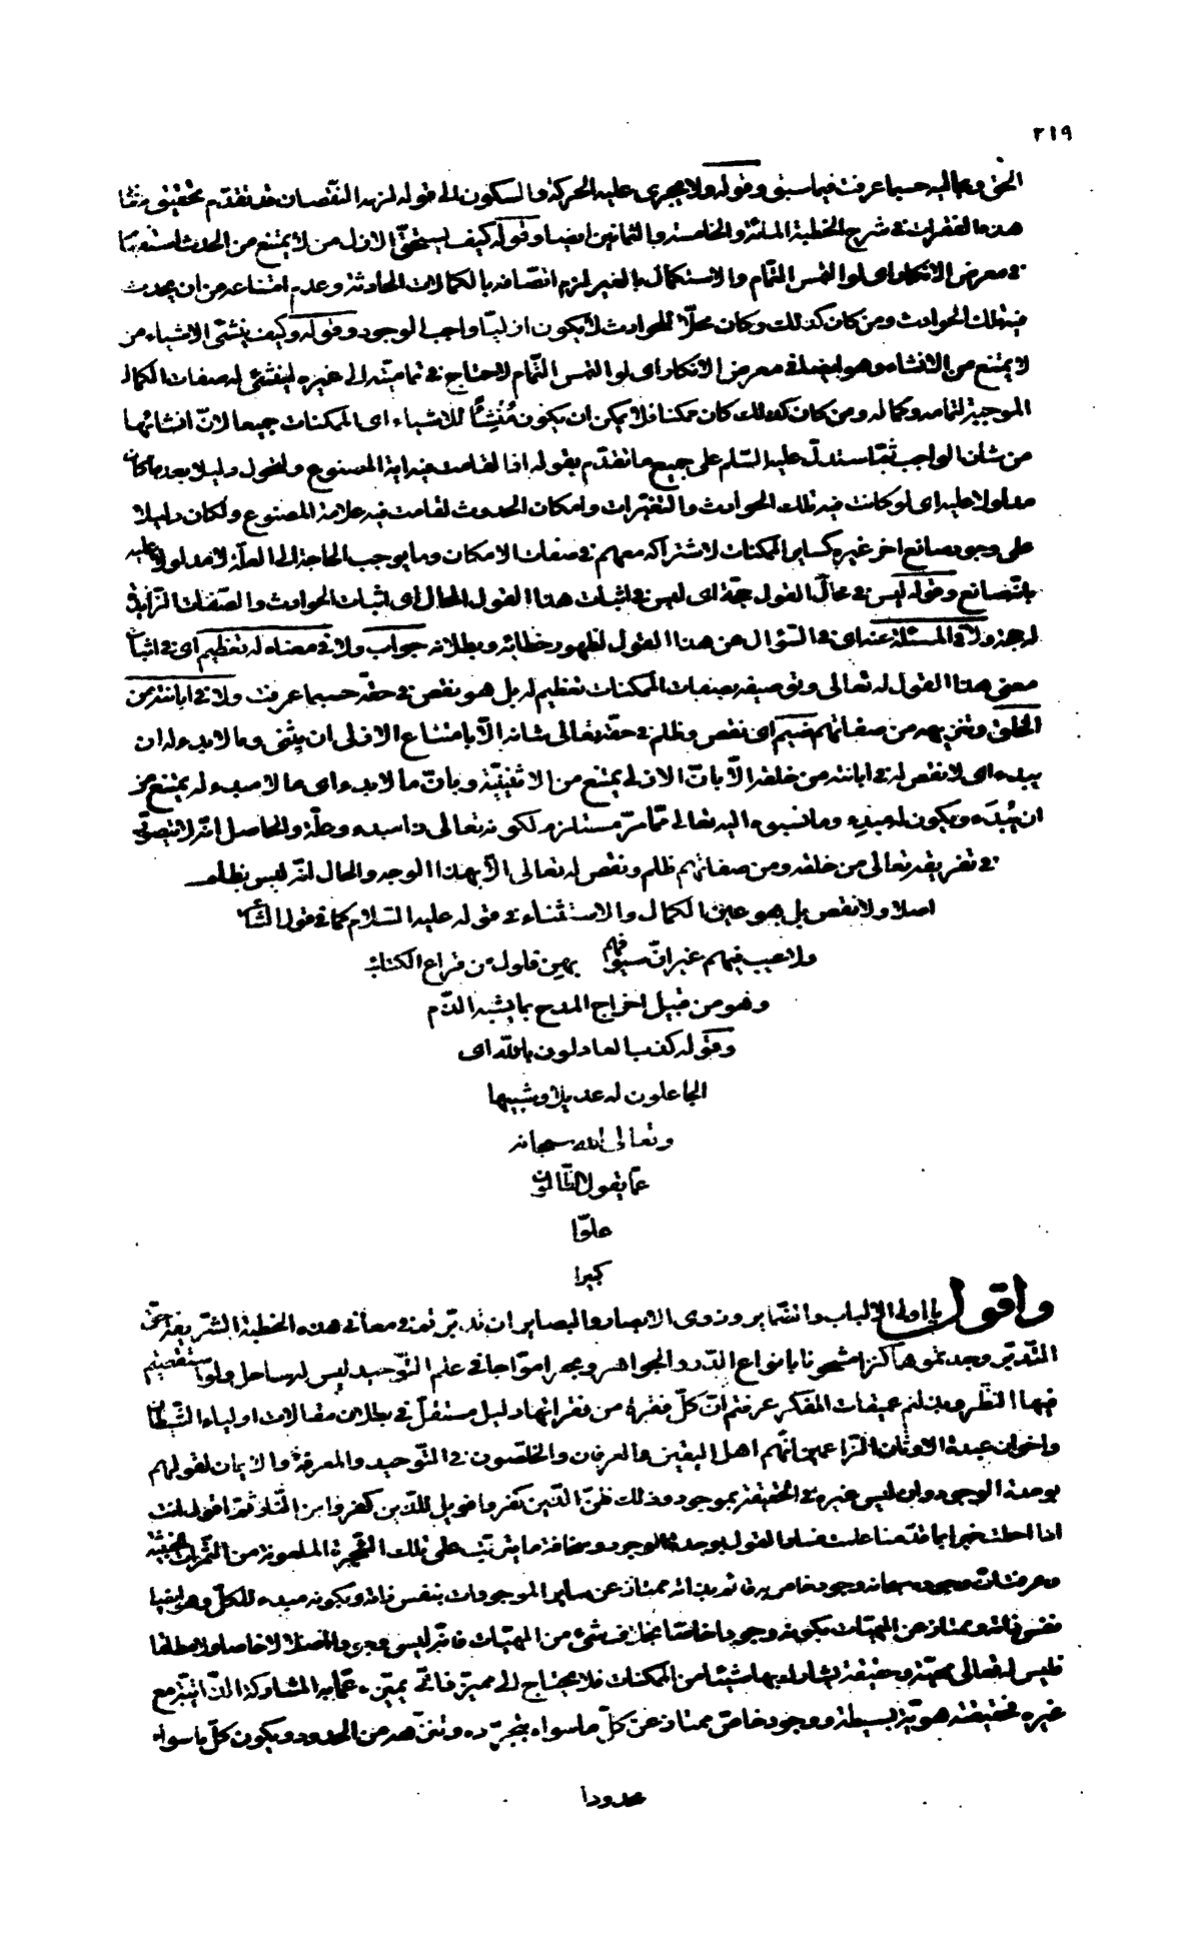 ٢١٩
الحق وعاليه حسبما عرفت فيما سبق وقوله ولا يجرى عليه الحركة والسكون الى قوله لزمه النقصان قد تقدم تحقيق
هذه الفقرات فى شرح الخطبة المائة والخامسة والثمانين ايضا وقوله كيف يستحق الازل من لا يمتنع من الحدث استفهام
فى معرض الانكار اى لو التمس التمام والاستكمال بالغير لزم اتصافه بالكمالات الحادثة وعدم امتناعه من ان يحدث
فيه تلك الحوادث ومن كان كذلك وكان محلا للحوادث لا يكون ازليا واجب الوجود وقوله وكيف ينشئ الاشياء من
لا يمتنع من الانشاء وهو ايضا فى معرض الانكار اى لو التمس التمام لاحتاج فى تماميته الى غيره لينشئ له صفات الكمال
الموجبة لتمامه وكماله ومن كان كذلك كان ممكنا فلا يمكن ان يكون مُنْشِئًا للاشياء اى الممكنات جميعا لان انشائها
من شان الواجب ثم استدل عليه السلم على جميع ما تقدم بقوله اذا لقامت فيه اية المصنوع ولتحول دليلا بعد ما كان
مدلولا عليه اى لو كانت فيه تلك الحوادث والتغيرات وامكان الحدوث لقامت فيه علامة المصنوع ولكان دليلا
على وجود صانع اخر غيره كساير الممكنات لاشتراكه معهم فى صفات الامكان وما يوجب الحاجة الى العلة لا مدلولا عليه
بانه صانع وقوله ليس فى محال القول حجة اى ليس فى اثبات هذا القول المحال اى اثبات الحوادث والصفات الزايدة
له حجة ولا فى المسئلة عنه اى فى السؤال عن هذا القول لظهور خطائه وبطلانه جواب ولا فى معناه له تعظيم اى فى اثبات
معنى هذا القول له تعالى وتوصيفه بصفات الممكنات تعظيم له بل هو نقص فى حقه حسبما عرفت ولا فى ابانته من
الخلق وتنزيهه من صفاتهم ضيم اى نقص وظلم فى حقه تعالى شانه الا بامتناع الازلى ان يثنى وما لا بدء له ان
يبدء اى لا نقص له فى ابانته من خلقه الا بان الازلى يمتنع من الاثنينية وبان ما لا بدء اى ما لا مبدء له يمتنع من
ان يُبْدَء ويكون له مبدء وما نسبوه اليه تعالى مما مر مستلزم لكونه تعالى ذا مبدء وعلة والحاصل انه لا يتصور
فى تفريقه تعالى من خلقه ومن صفاتهم ظلم ونقص له تعالى الا بهذا الوجه والحال انه ليس بظلم
اصلا ولا نقص بل هو عين الكمال والاستثناء فى قوله عليه السلام كما فى قول الشاعر
ولا عيب فيهم غير ان سيوفهم بهن فلول من قراع الكتائب
وهو من قبيل اخراج المدح بما يشبه الذم
وقوله كذب العادلون بالله اى
الجاعلون له عديلا وشبيها
وتعالى الله سبحانه
عما يقول الظالمون
علوا
كبيرا
واقول يا اولى الالباب والضماير وذوى الابصار والبصاير ان تدبرتم فى معانى هذه الخطبة الشريفة حق
التدبر وجدتموها كنزا مشحونا بانواع الدرر والجواهر وبحرا مواجا فى علم التوحيد ليس له ساحل ولو استقصيتم
فيها النظر وبذلتم عميقات الفكر عرفتم ان كل فقرة من فقراتها دليل مستقل فى بطلان مقالات اولياء الشيطان
واخوان عبدة الاوثان الزاعمين انهم اهل اليقين والعرفان والمخلصون فى التوحيد والمعرفة والايمان لقولهم
بوحدة الوجود وان ليس غيره فى الحقيقة بموجود وذلك ظن الذين كفروا فويل للذين كفروا من النار ثم اقول انت
اذا احطت خبرا بما قدمنا علمت فساد القول بوحدة الوجود وسخافة ما يترتب على تلك الشجرة الملعونة من الثمرات الخبيثة
وعرفت ان وجوده سبحانه وجود خاص به فاعرف انه ممتاز عن ساير الموجودات بنفس ذاته وبكونه مبدء للكل وهو ايضا
نفس ذاته وممتاز عن المهيات بكونه وجودا خاصا بخلاف شئ من المهيات فانه ليس وجودا اصلا لا خاصا ولا مطلقا
فليس له تعالى مهية وحقيقة يشارك بها شيئا من الممكنات فلا يحتاج الى مميز ذاتى يميزه عما به المشاركة الذاتية مع
غيره فحقيقته هوية بسيطة ووجود خاص ممتاز عن كل ما سواه بتجرده وتنزهه من الحدود ويكون كل ما سواه
محدودا